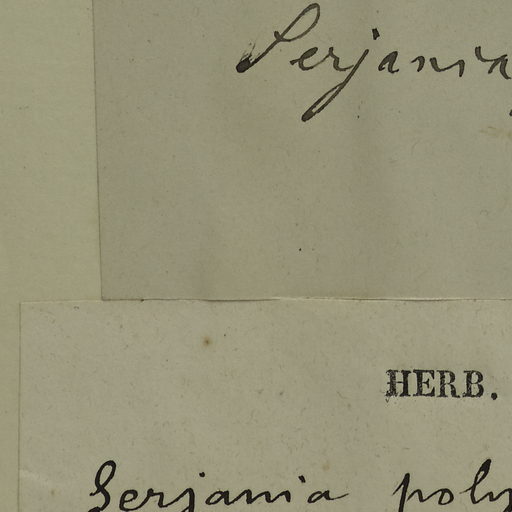 Serjania
HERB.
Serjania poly